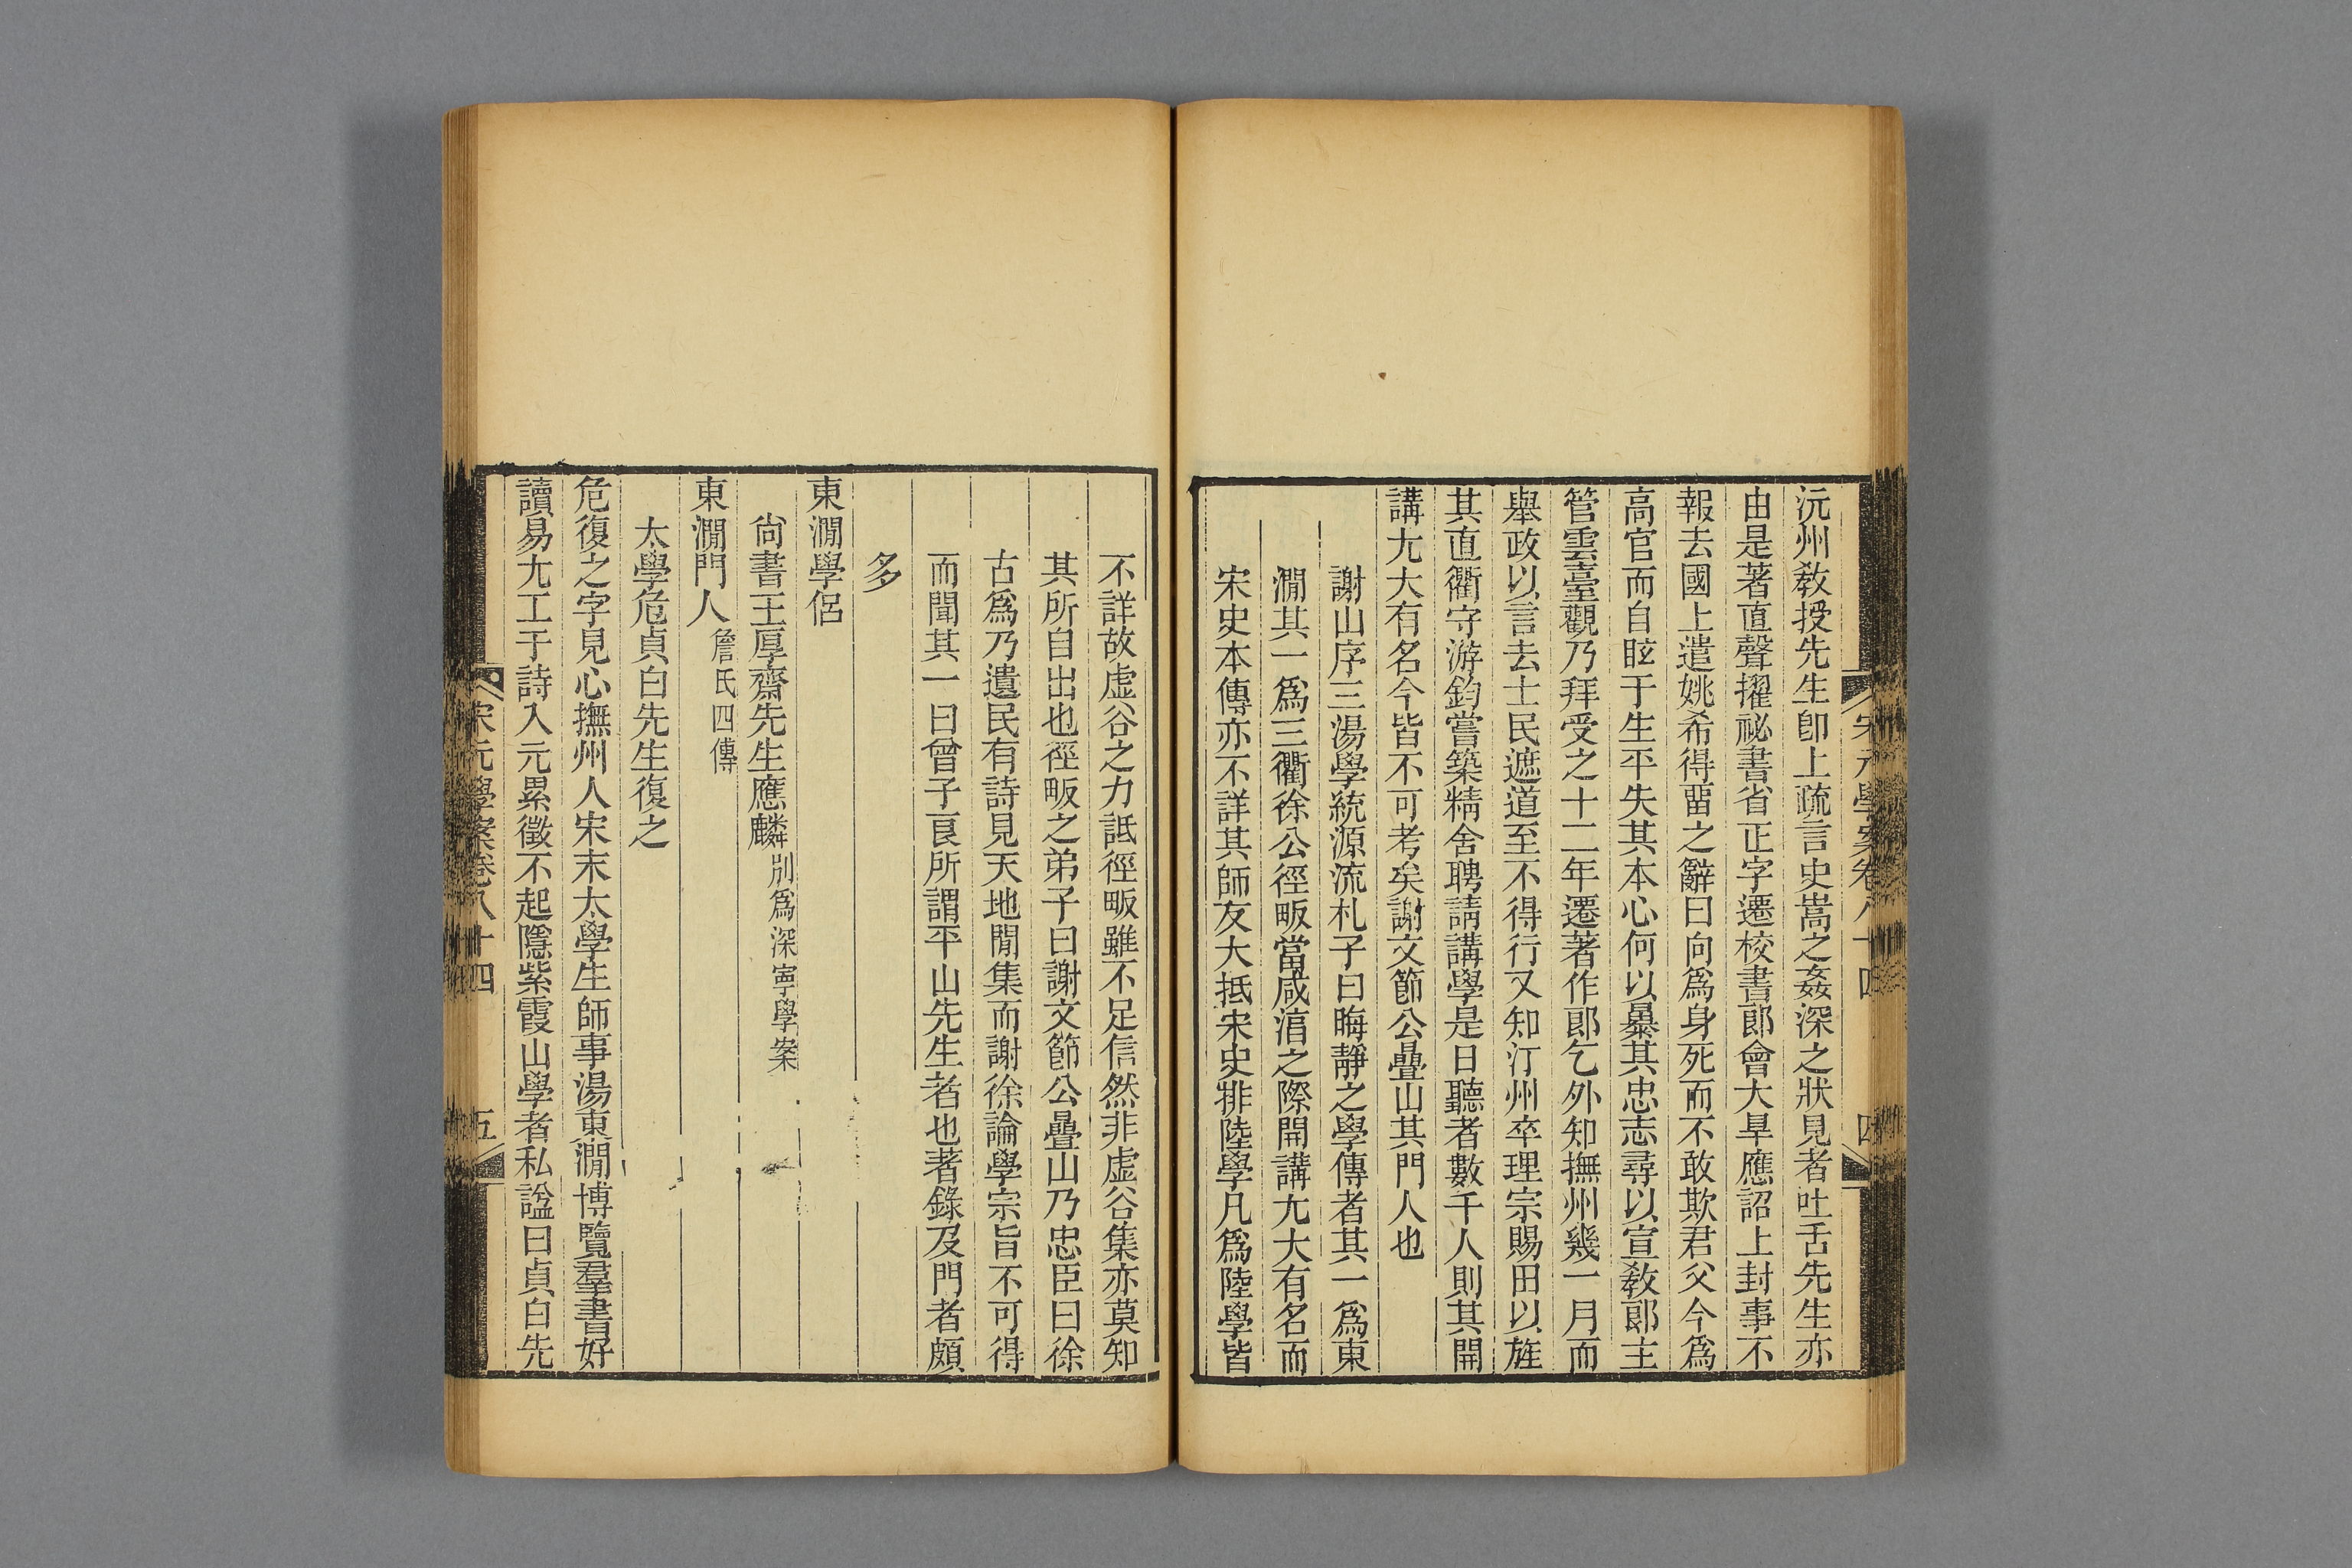 宋元學案卷八十四 四
沅州敎授先生卽上疏言史嵩之姦深之狀見者吐舌先生亦
由是著直聲擢祕書省正字遷校書郞會大旱應詔上封事不
報去國上遣姚希得畱之辭曰向爲身死而不敢欺君父今爲
高官而自眩于生平失其本心何以暴其忠志尋以宣敎郞主
管雲臺觀乃拜受之十二年遷著作郞乞外知撫州幾一月而
舉政以言去士民遮道至不得行又知汀州卒理宗賜田以旌
其直衢守游鈞嘗築精舍聘請講學是日聽者數千人則其開
講尤大有名今皆不可考矣謝文節公疊山其門人也
謝山序三湯學統源流札子曰晦靜之學傳者其一爲東
澗其一爲三衢徐公徑畈當咸淳之際開講尤大有名而
宋史本傳亦不詳其師友大抵宋史排陸學凡爲陸學皆
不詳故虛谷之力詆徑畈雖不足信然非虛谷集亦莫知
其所自出也徑畈之弟子曰謝文節公疊山乃忠臣曰徐
古爲乃遺民有詩見天地閒集而謝徐論學宗旨不可得
而聞其一曰曾子良所謂平山先生者也著錄及門者頗
多
東澗學侶
尙書王厚齋先生應麟別爲深寧學案
東澗門人詹氏四傳
太學危貞白先生復之
危復之字見心撫州人宋末太學生師事湯東澗博覽羣書好
讀易尤工于詩入元累徵不起隱紫霞山學者私諡曰貞白先
宋元學案卷八十四 五